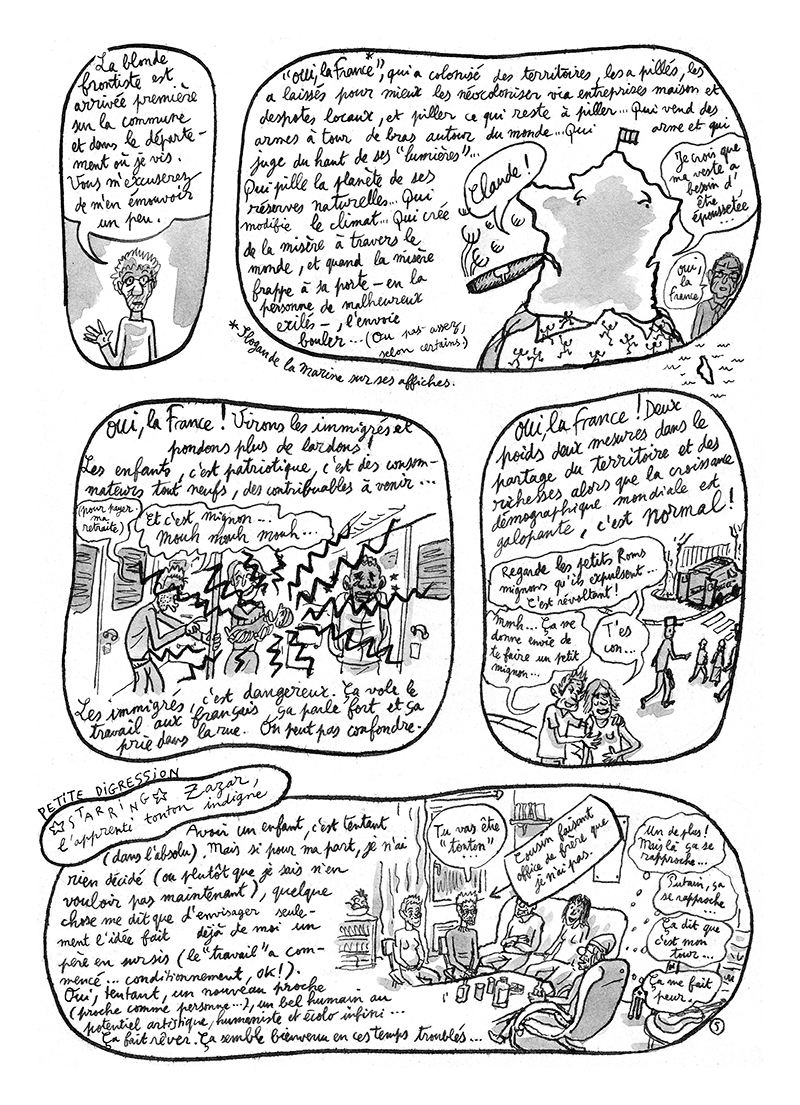 La blonde
frontiste est
arrivée première
sur la commune
et dans le départe-
ment où je vis.
Vous m'excuserez
de m'en émouvoir
un peu.
"Oui, la France"*, qui a colonisé des territoires, les a pillés, les
a laissés pour mieux les néocoloniser via entreprises maison et
despotes locaux, et piller ce qui reste à piller... Qui vend des
armes à tour de bras autour du monde... Qui arme et qui
juge du haut de ses "lumières"...
Qui pille la planète de ses
réserves naturelles... Qui
modifie le climat... Qui crée
de la misère à travers le
monde, et quand la misère
frappe à sa porte – en la
personne de malheureux
exilés –, l'envoie
bouler... (Ou pas assez,
selon certains.)
Claude !
Je crois que
ma veste a
besoin d'
être
époussetée...
Oui,
la
France
* Slogan de la Marine sur ses affiches.
Oui, la France ! Virons les immigrés et
pondons plus de lardons !
Les enfants, c'est patriotique, c'est des consom-
mateurs tout neufs, des contribuables à venir...
(pour payer
ma
retraite)
Et c'est mignon...
Mouh mouh mouh...
Les immigrés, c'est dangereux. Ça vole le
travail aux français, ça parle fort et ça
prie dans la rue. On peut pas confondre.
Oui, la France ! Deux
poids deux mesures dans le
partage du territoire et des
richesses alors que la croissance
démographique mondiale est
galopante, c'est normal !
Regarde les petits Roms
mignons qu'ils expulsent...
C'est révoltant !
Mmh... Ça me
donne envie de
te faire un petit
mignon...
T'es
con...
PETITE DIGRESSION
☆STARRING☆ Zazar,
l'apprenti tonton indigne
Avoir un enfant, c'est tentant
(dans l'absolu). Mais si pour ma part, je n'ai
rien décidé (ou plutôt que je sais n'en
vouloir pas maintenant), quelque
chose me dit que d'envisager seule-
ment l'idée fait déjà de moi un
père en sursis (le "travail" a com-
mencé... conditionnement, ok!).
Oui, tentant, un nouveau proche
(proche comme personne...), un bel humain au
potentiel artistique, humaniste et écolo infini...
Ça fait rêver. Ça semble bienvenu en ces temps troublés...
Tu vas être
"tonton"...
Cousin faisant
office de frère que
je n'ai pas.
Un de plus!
Mais là ça se
rapproche...
Putain, ça
se rapproche
...
Ça dit que
c'est mon
tour...
Ça me fait
peur.
5